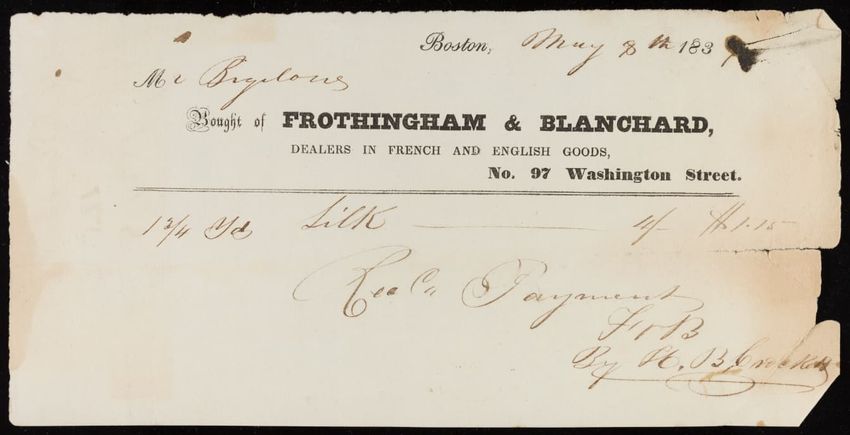 Boston, May 8th 183
Mr Bigelow
Bought of FROTHINGHAM & BLANCHARD,
DEALERS IN FRENCH AND ENGLISH GOODS,
No. 97 Washington Street.
1 3/4 Yd Silk 4/- $1.15
Recd Payment
F & B
By H. B. Crockett